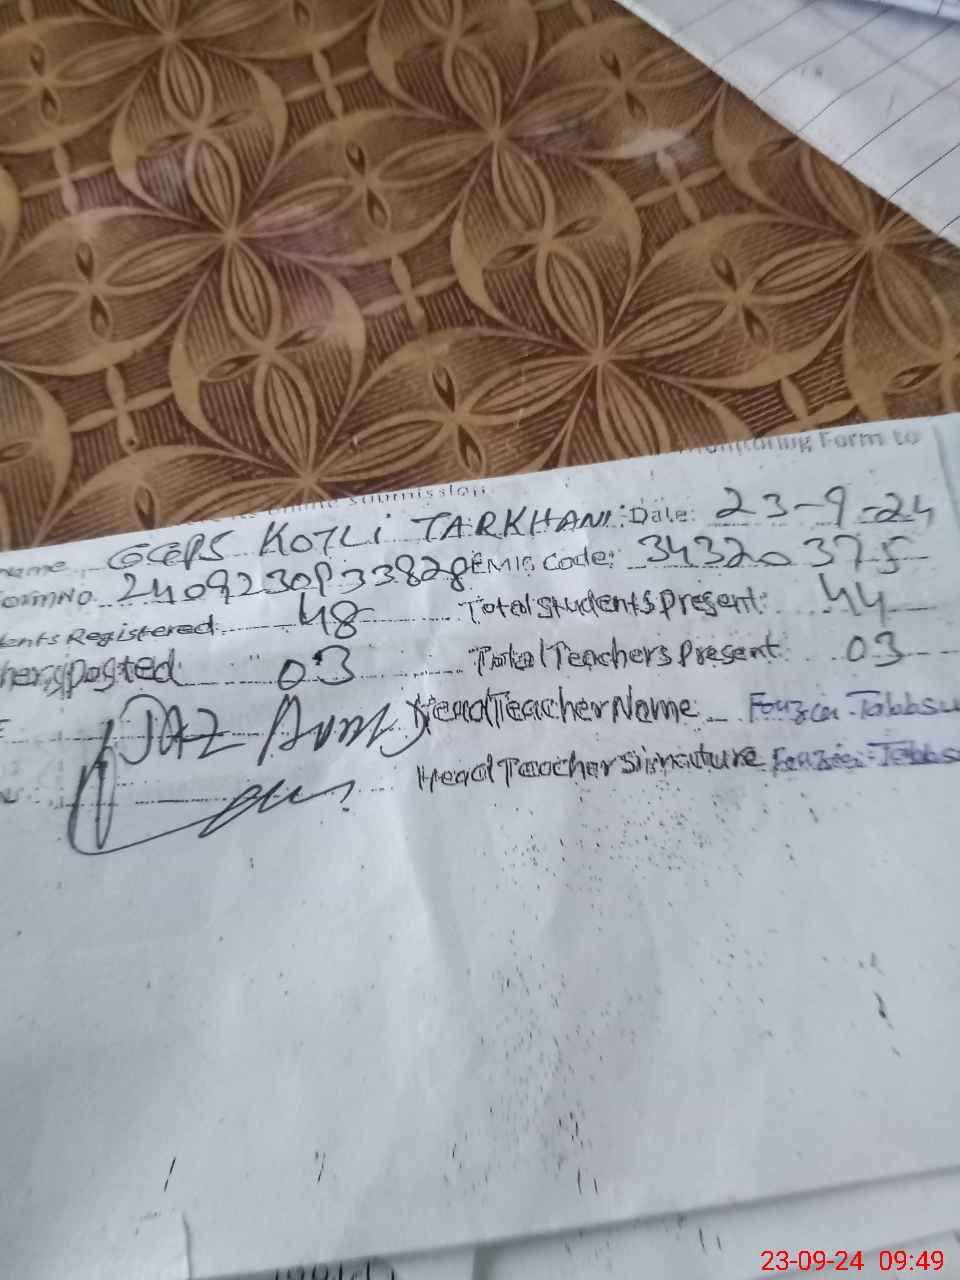 Monitoring Form to
submission.
name GGEPS KOTLI TARKHANI Date: 23-9-24
Form No. 2409230P33828 EMIS Code: 34320375
ents Registered: 48 Total Students Present: 44
hers posted 03 Total Teachers Present: 03
Head Teacher Name Fouzia Tabbsu
Head Teacher Sirnature Fouzia Tabbs
23-09-24 09:49